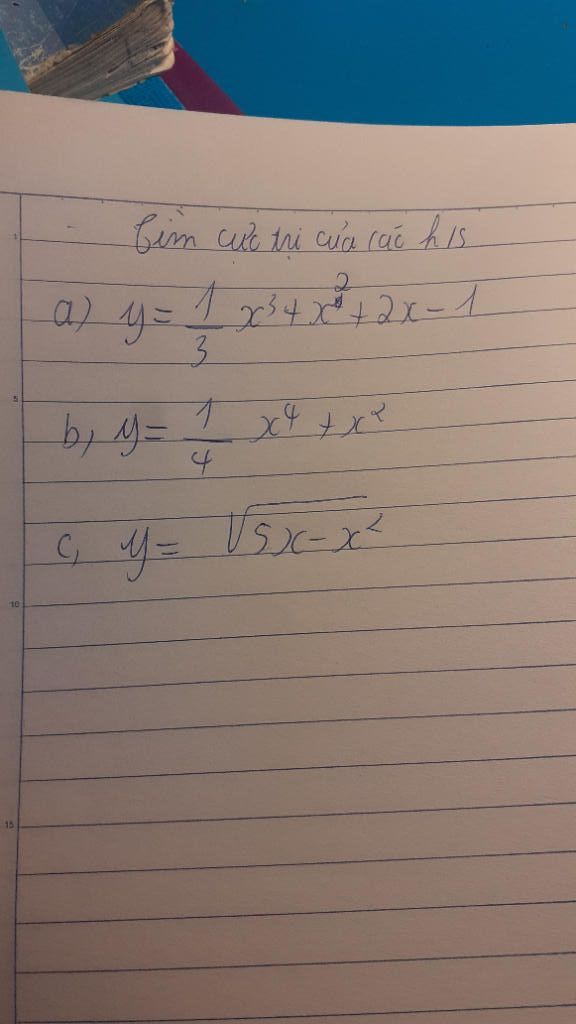 Tìm cực trị của các h/s
a) y = 1/3 x³ + x² + 2x - 1
b, y = 1/4 x⁴ + x²
c, y = √(5x - x²)
1
5
10
15